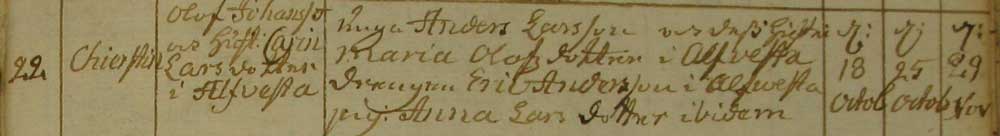 22. Chierstin
Olof Johansson
och Hust: Cajin
Lars dotter
i Alfvesta
unga Anders Larsson och dess hustru
Maria Olofs dotter i Alfvesta
drengen Eric Andersson i Alfvesta
pig. Anna Lars dotter ibidem
d: 18 octob
d: 25 octob
d: 29 Nov